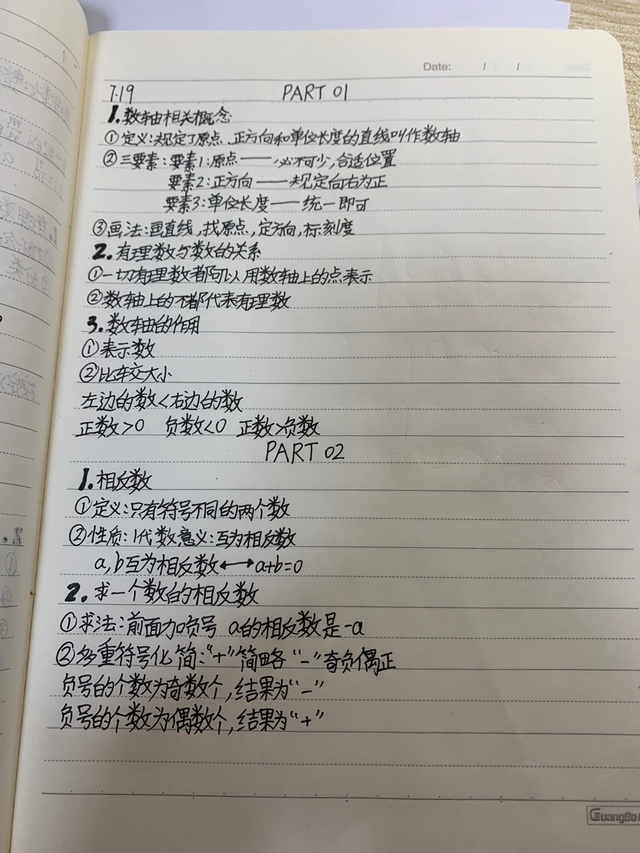 Date: / /
7.19 PART 01
1.数轴相关概念
①定义:规定了原点、正方向和单位长度的直线叫作数轴
②三要素:要素1:原点——必不可少,合适位置
要素2:正方向——规定向右为正
要素3:单位长度——统一即可
③画法:画直线,找原点,定方向,标刻度
2.有理数与数的关系
①一切有理数都可以用数轴上的点表示
②数轴上的不都代表有理数
3.数轴的作用
①表示数
②比较大小
左边的数<右边的数
正数>0 负数<0 正数>负数
PART 02
1.相反数
①定义:只有符号不同的两个数
②性质:代数意义:互为相反数
a,b互为相反数⟷a+b=0
2.求一个数的相反数
①求法:前面加负号 a的相反数是-a
②多重符号化简:"+"简略"-"奇负偶正
负号的个数为奇数个,结果为"-"
负号的个数为偶数个,结果为"+"
GuangBo